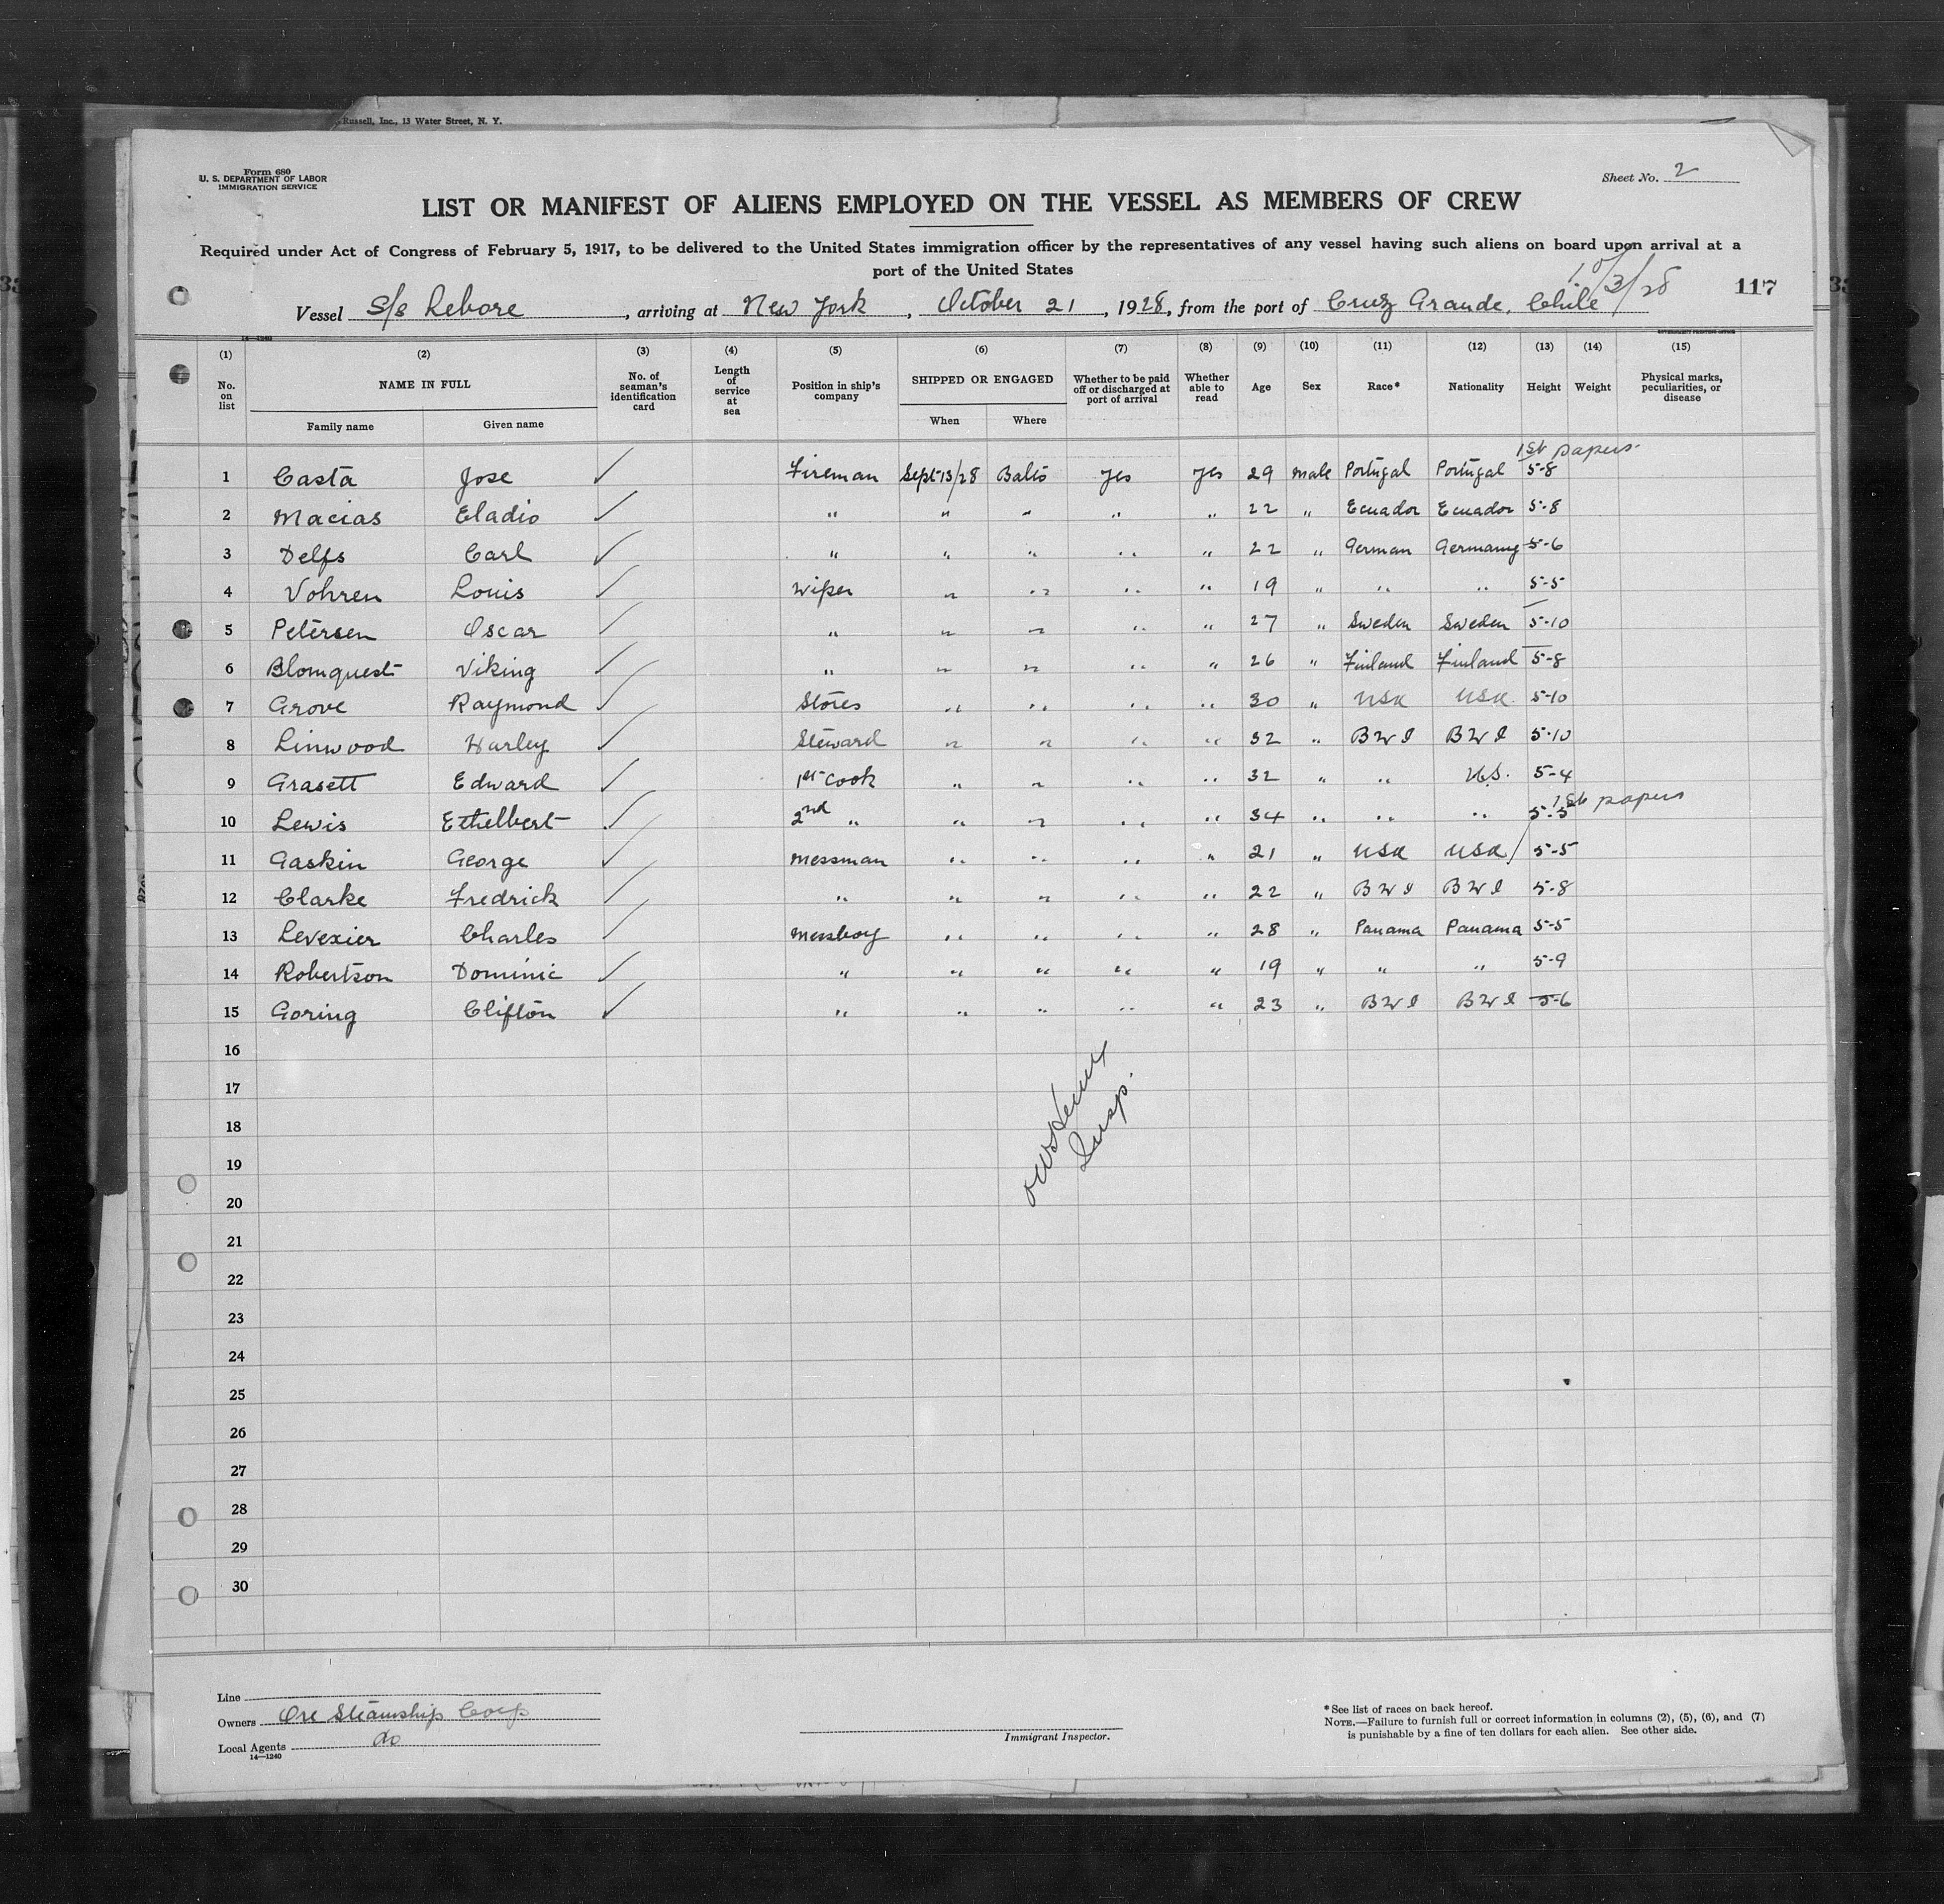 Russell, Inc., 13 Water Street, N. Y.
Form 680
U. S. DEPARTMENT OF LABOR
IMMIGRATION SERVICE
Sheet No. 2
LIST OR MANIFEST OF ALIENS EMPLOYED ON THE VESSEL AS MEMBERS OF CREW
Required under Act of Congress of February 5, 1917, to be delivered to the United States immigration officer by the representatives of any vessel having such aliens on board upon arrival at a
port of the United States
10/3/28
117
Vessel S/s Lebore, arriving at New York, October 21, 1928, from the port of Cruz Grande, Chile
14—1240
GOVERNMENT PRINTING OFFICE
(1) (2) (3) (4) (5) (6) (7) (8) (9) (10) (11) (12) (13) (14) (15)
No. on list NAME IN FULL No. of seaman's identification card Length of service at sea Position in ship's company SHIPPED OR ENGAGED Whether to be paid off or discharged at port of arrival Whether able to read Age Sex Race* Nationality Height Weight Physical marks, peculiarities, or disease
Family name Given name When Where
1st papers
1 Casta Jose ✓ Fireman Sept 13/28 Balto Yes Yes 29 male Portugal Portugal 5-8
2 Macias Eladio ✓ " " " " " 22 " Ecuador Ecuador 5-8
3 Delfs Carl ✓ " " " " " 22 " German Germany 5-6
4 Vohren Louis ✓ Wiper " " " " 19 " " " 5-5
5 Petersen Oscar ✓ " " " " " 27 " Sweden Sweden 5-10
6 Blomquest Viking ✓ " " " " " 26 " Finland Finland 5-8
7 Grove Raymond ✓ Stores " " " " 30 " USA USA 5-10
8 Linwood Harley ✓ Steward " " " " 32 " BWI BWI 5-10
9 Grasett Edward ✓ 1st cook " " " " 32 " " U.S. 5-4
1st papers
10 Lewis Ethelbert ✓ 2nd " " " " " 34 " " " 5-5
11 Gaskin George ✓ Messman " " " " 21 " USA USA 5-5
12 Clarke Fredrick ✓ " " " " " 22 " BWI BWI 5-8
13 Levexier Charles ✓ Messboy " " " " 28 " Panama Panama 5-5
14 Robertson Dominic ✓ " " " " " 19 " " " 5-9
15 Goring Clifton ✓ " " " " " 23 " BWI BWI 5-6
16
17
18
19
20
21
22
23
24
25
26
27
28
29
30
Insp.
Line
Owners Ore Steamship Corp
Local Agents do
14—1240
Immigrant Inspector.
*See list of races on back hereof.
NOTE.—Failure to furnish full or correct information in columns (2), (5), (6), and (7)
is punishable by a fine of ten dollars for each alien. See other side.